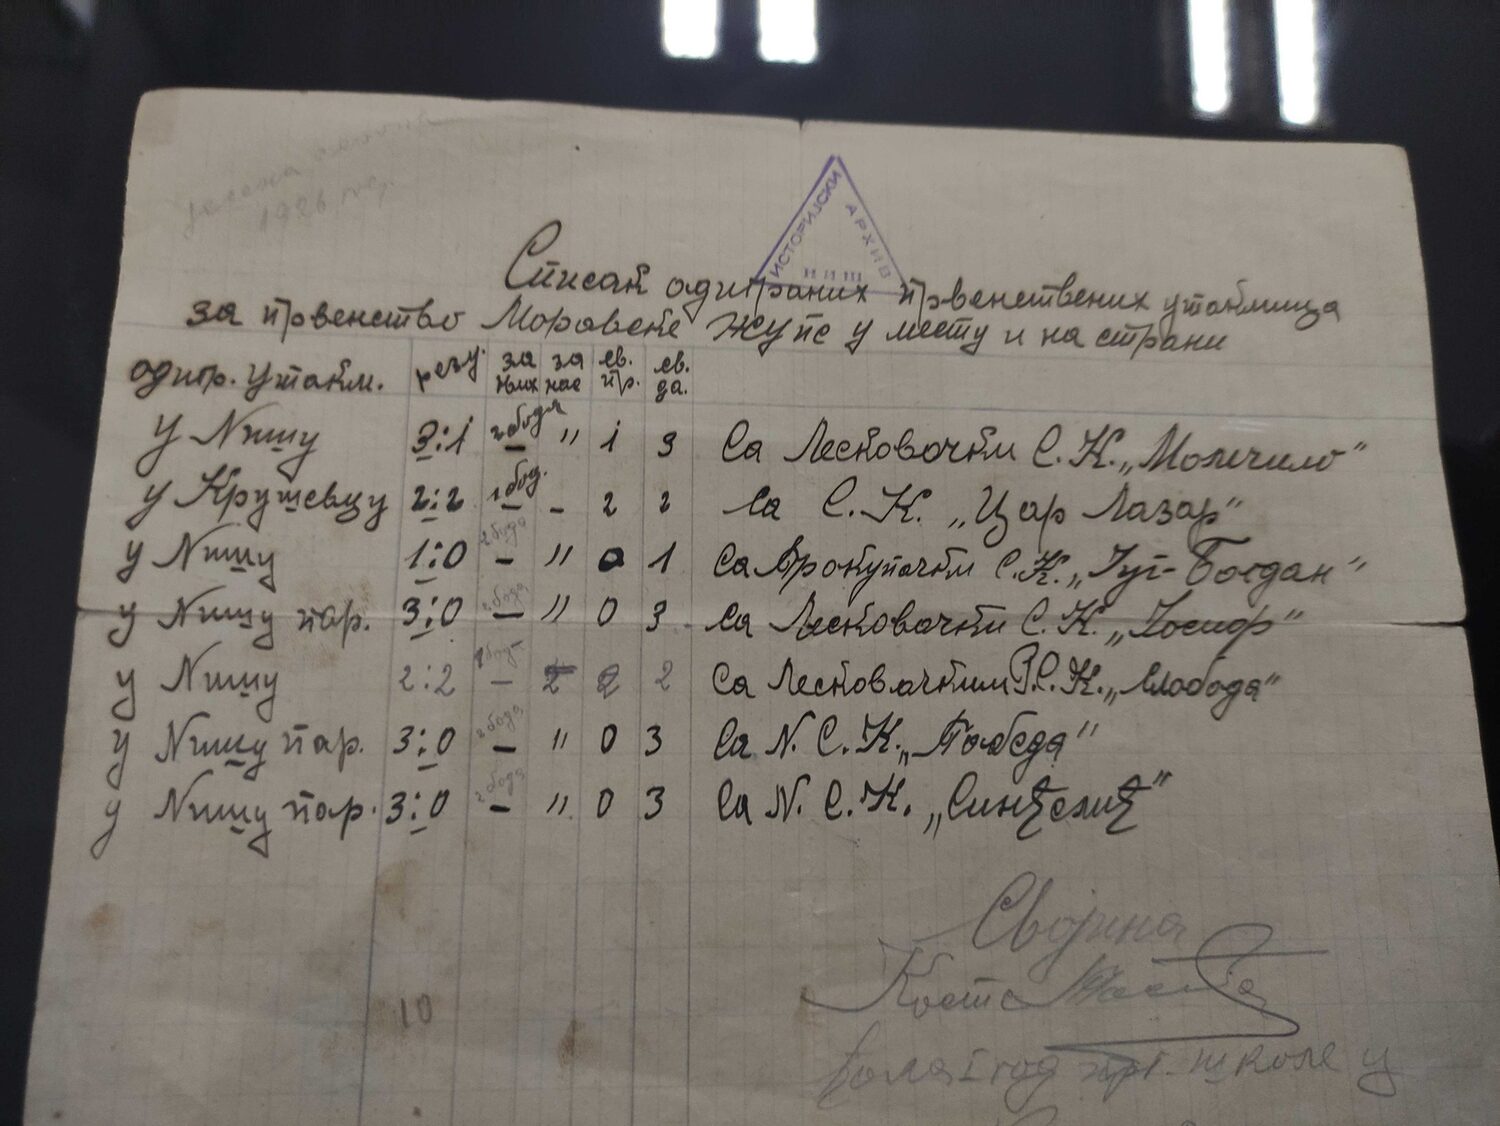 1926 год.
ИСТОРИЈСКИ АРХИВ
НИШ
Списак одиграних првенствених утакмица
за првенство Моравске Жупе у месту и на страни
одигр. утакм. резу. за њих за нас гв. пр. гв. да.
у Nишу 3:1 2 бода – " 1 3 Са Лесковачким С.К. „Момчило"
у Крушевцу 2:2 1 бод. – – 2 2 Са С.К. „Цар Лазар"
у Nишу 1:0 2 бода – " 0 1 Са Прокупачким С.К. „Југ-Богдан"
у Nишу пар. 3:0 2 бода – " 0 3 Са Лесковачким С.К. „Јосиф"
у Nишу 2:2 1 бод – 2 2 Са Лесковачким Р.С.К. „Слобода"
у Nишу пар. 3:0 2 бода – " 0 3 Са N.С.К. „Победа"
у Nишу пар. 3:0 2 бода – " 0 3 Са N.С.К. „Синђелић"
Својина
Коста
I год школе у
10